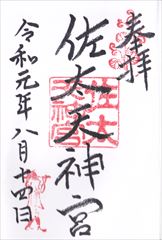 奉拝
佐太天神宮
令和元年八月十四日
佐太
天神宮